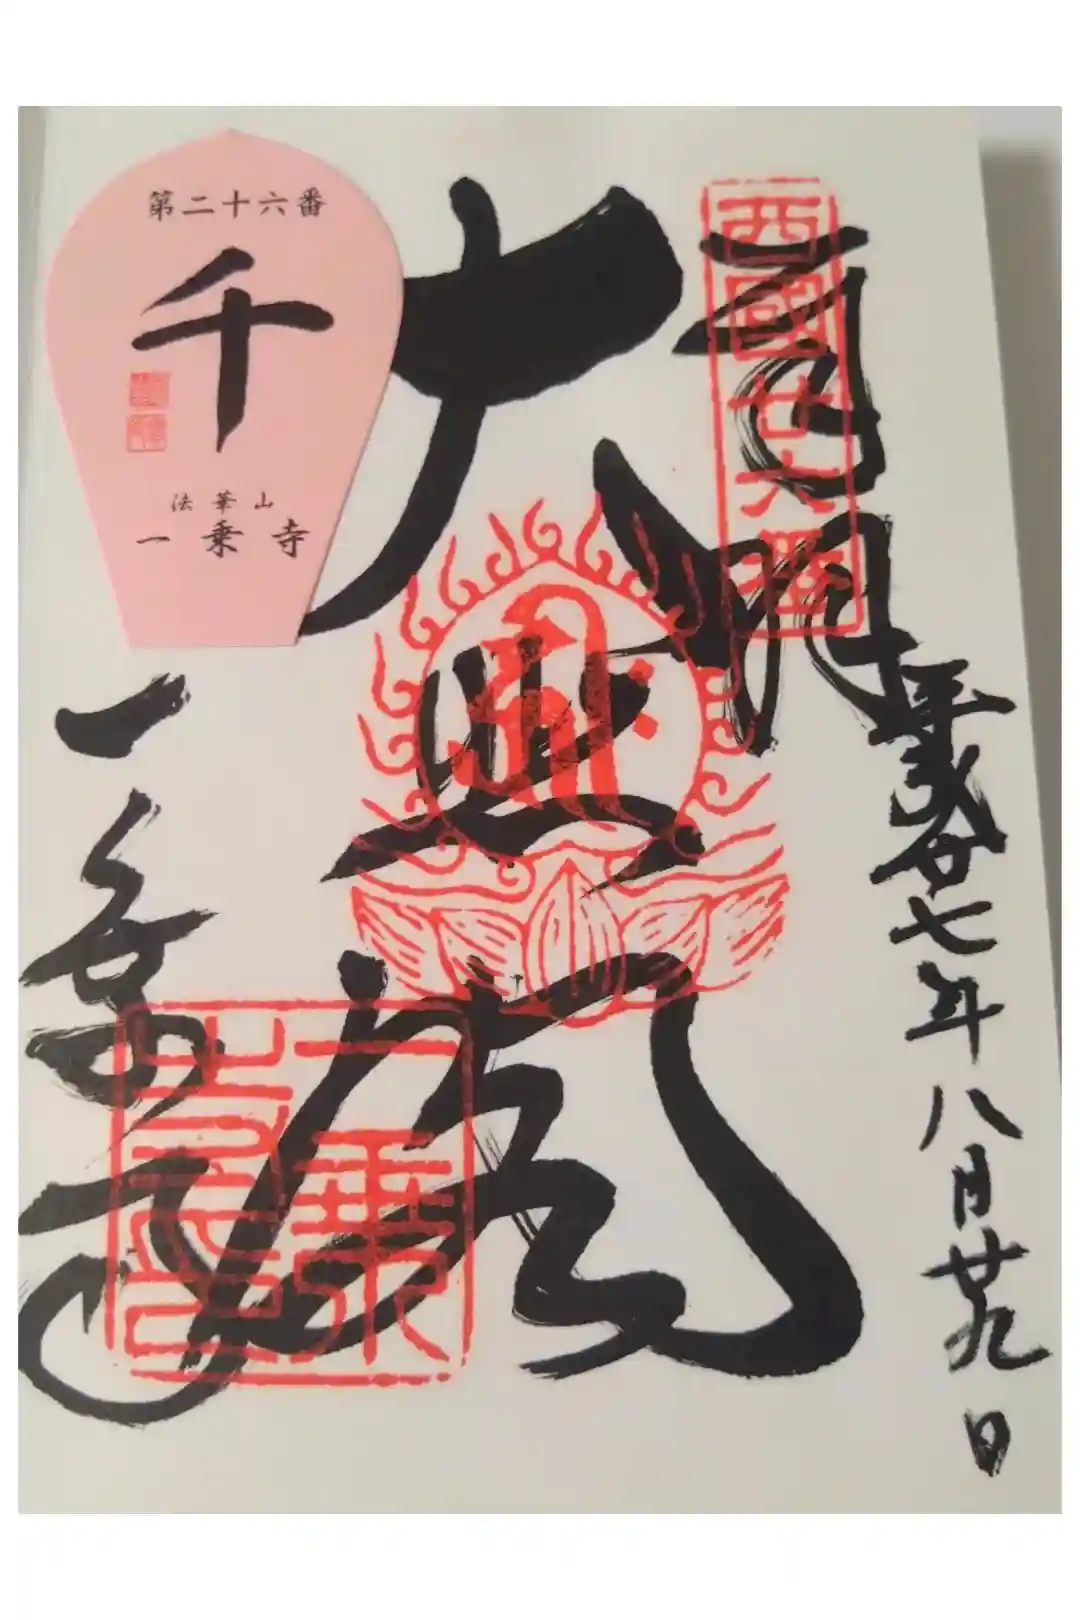 奉拝
西國廿六番
平成廿七年八月廿九日
大悲閣
一乗寺
一乗寺印
第二十六番
千
法華山
一乗寺